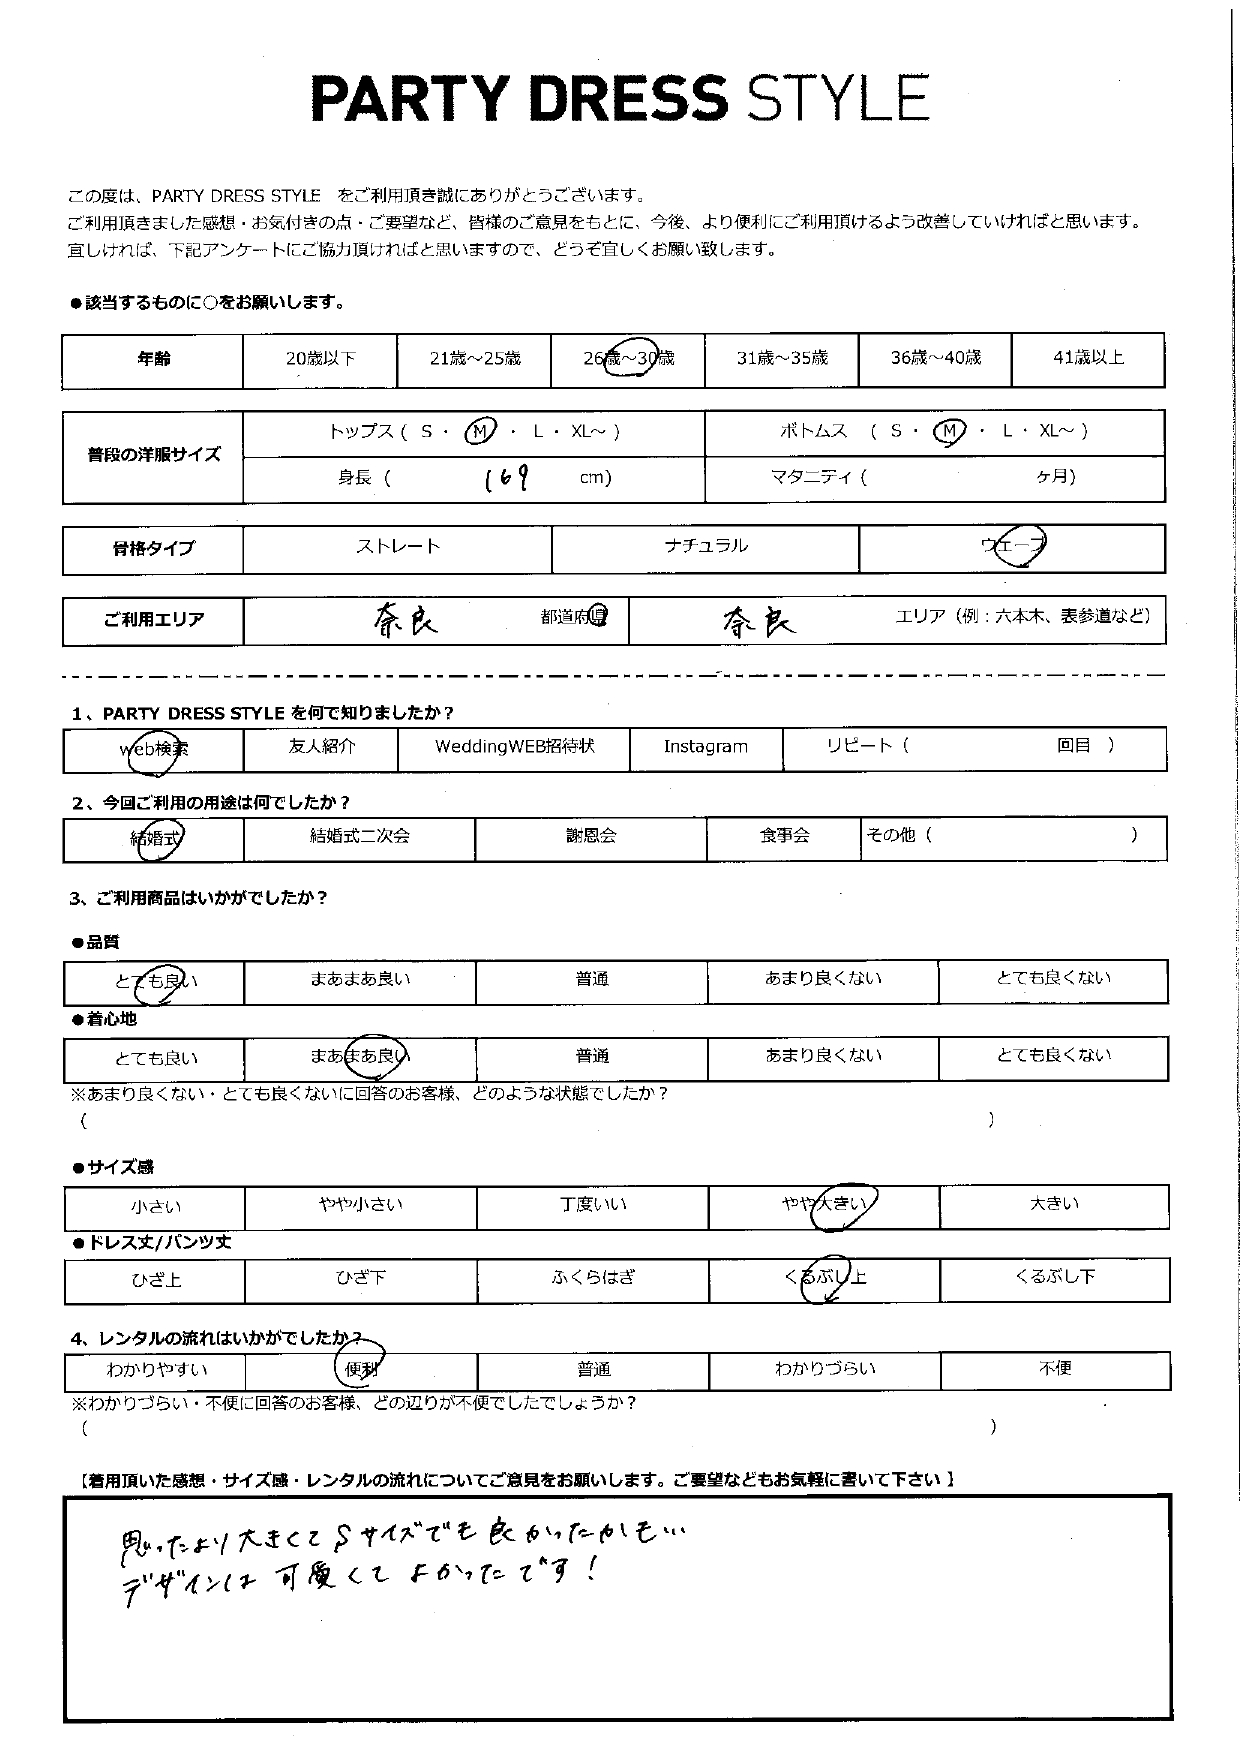 PARTY DRESS STYLE
この度は、PARTY DRESS STYLE をご利用頂き誠にありがとうございます。
ご利用頂きました感想・お気付きの点・ご要望など、皆様のご意見をもとに、今後、より便利にご利用頂けるよう改善していければと思います。
宜しければ、下記アンケートにご協力頂ければと思いますので、どうぞ宜しくお願い致します。
●該当するものに○をお願いします。
年齢 20歳以下 21歳～25歳 26歳～30歳 31歳～35歳 36歳～40歳 41歳以上
普段の洋服サイズ
トップス ( S ・ M ・ L ・ XL～ ) ボトムス ( S ・ M ・ L ・ XL～ )
身長 ( 169 cm) マタニティ ( ヶ月)
骨格タイプ ストレート ナチュラル ウェーブ
ご利用エリア 奈良 都道府県 奈良 エリア（例：六本木、表参道など）
1、PARTY DRESS STYLE を何で知りましたか？
web検索 友人紹介 WeddingWEB招待状 Instagram リピート ( 回目 )
2、今回ご利用の用途は何でしたか？
結婚式 結婚式二次会 謝恩会 食事会 その他 ( )
3、ご利用商品はいかがでしたか？
●品質
とても良い まあまあ良い 普通 あまり良くない とても良くない
●着心地
とても良い まあまあ良い 普通 あまり良くない とても良くない
※あまり良くない・とても良くないに回答のお客様、どのような状態でしたか？
( )
●サイズ感
小さい やや小さい 丁度いい やや大きい 大きい
●ドレス丈/パンツ丈
ひざ上 ひざ下 ふくらはぎ くるぶし上 くるぶし下
4、レンタルの流れはいかがでしたか？
わかりやすい 便利 普通 わかりづらい 不便
※わかりづらい・不便に回答のお客様、どの辺りが不便でしたでしょうか？
( )
【着用頂いた感想・サイズ感・レンタルの流れについてご意見をお願いします。ご要望などもお気軽に書いて下さい】
思ったより大きくてSサイズでも良かったかも…
デザインは可愛くてよかったです！